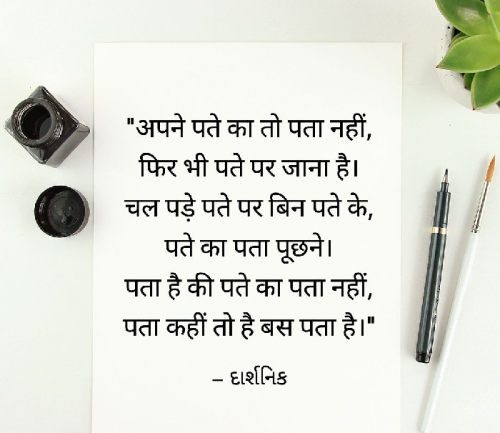 "अपने पते का तो पता नहीं,
फिर भी पते पर जाना है।
चल पड़े पते पर बिन पते के,
पते का पता पूछने।
पता है की पते का पता नहीं,
पता कहीं तो है बस पता है।"
– દાર્શનિક